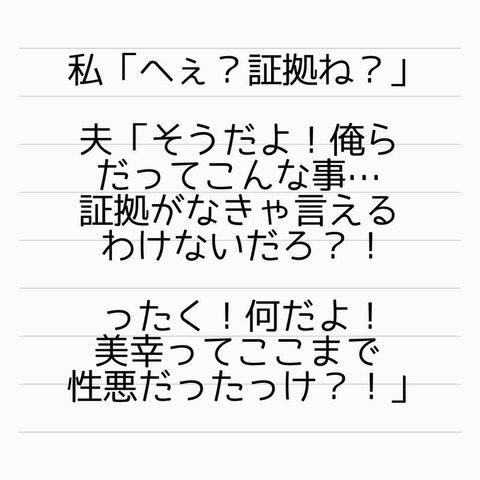 私「へぇ？証拠ね？」
夫「そうだよ！俺ら
だってこんな事…
証拠がなきゃ言える
わけないだろ？！
ったく！何だよ！
美幸ってここまで
性悪だったっけ？！」